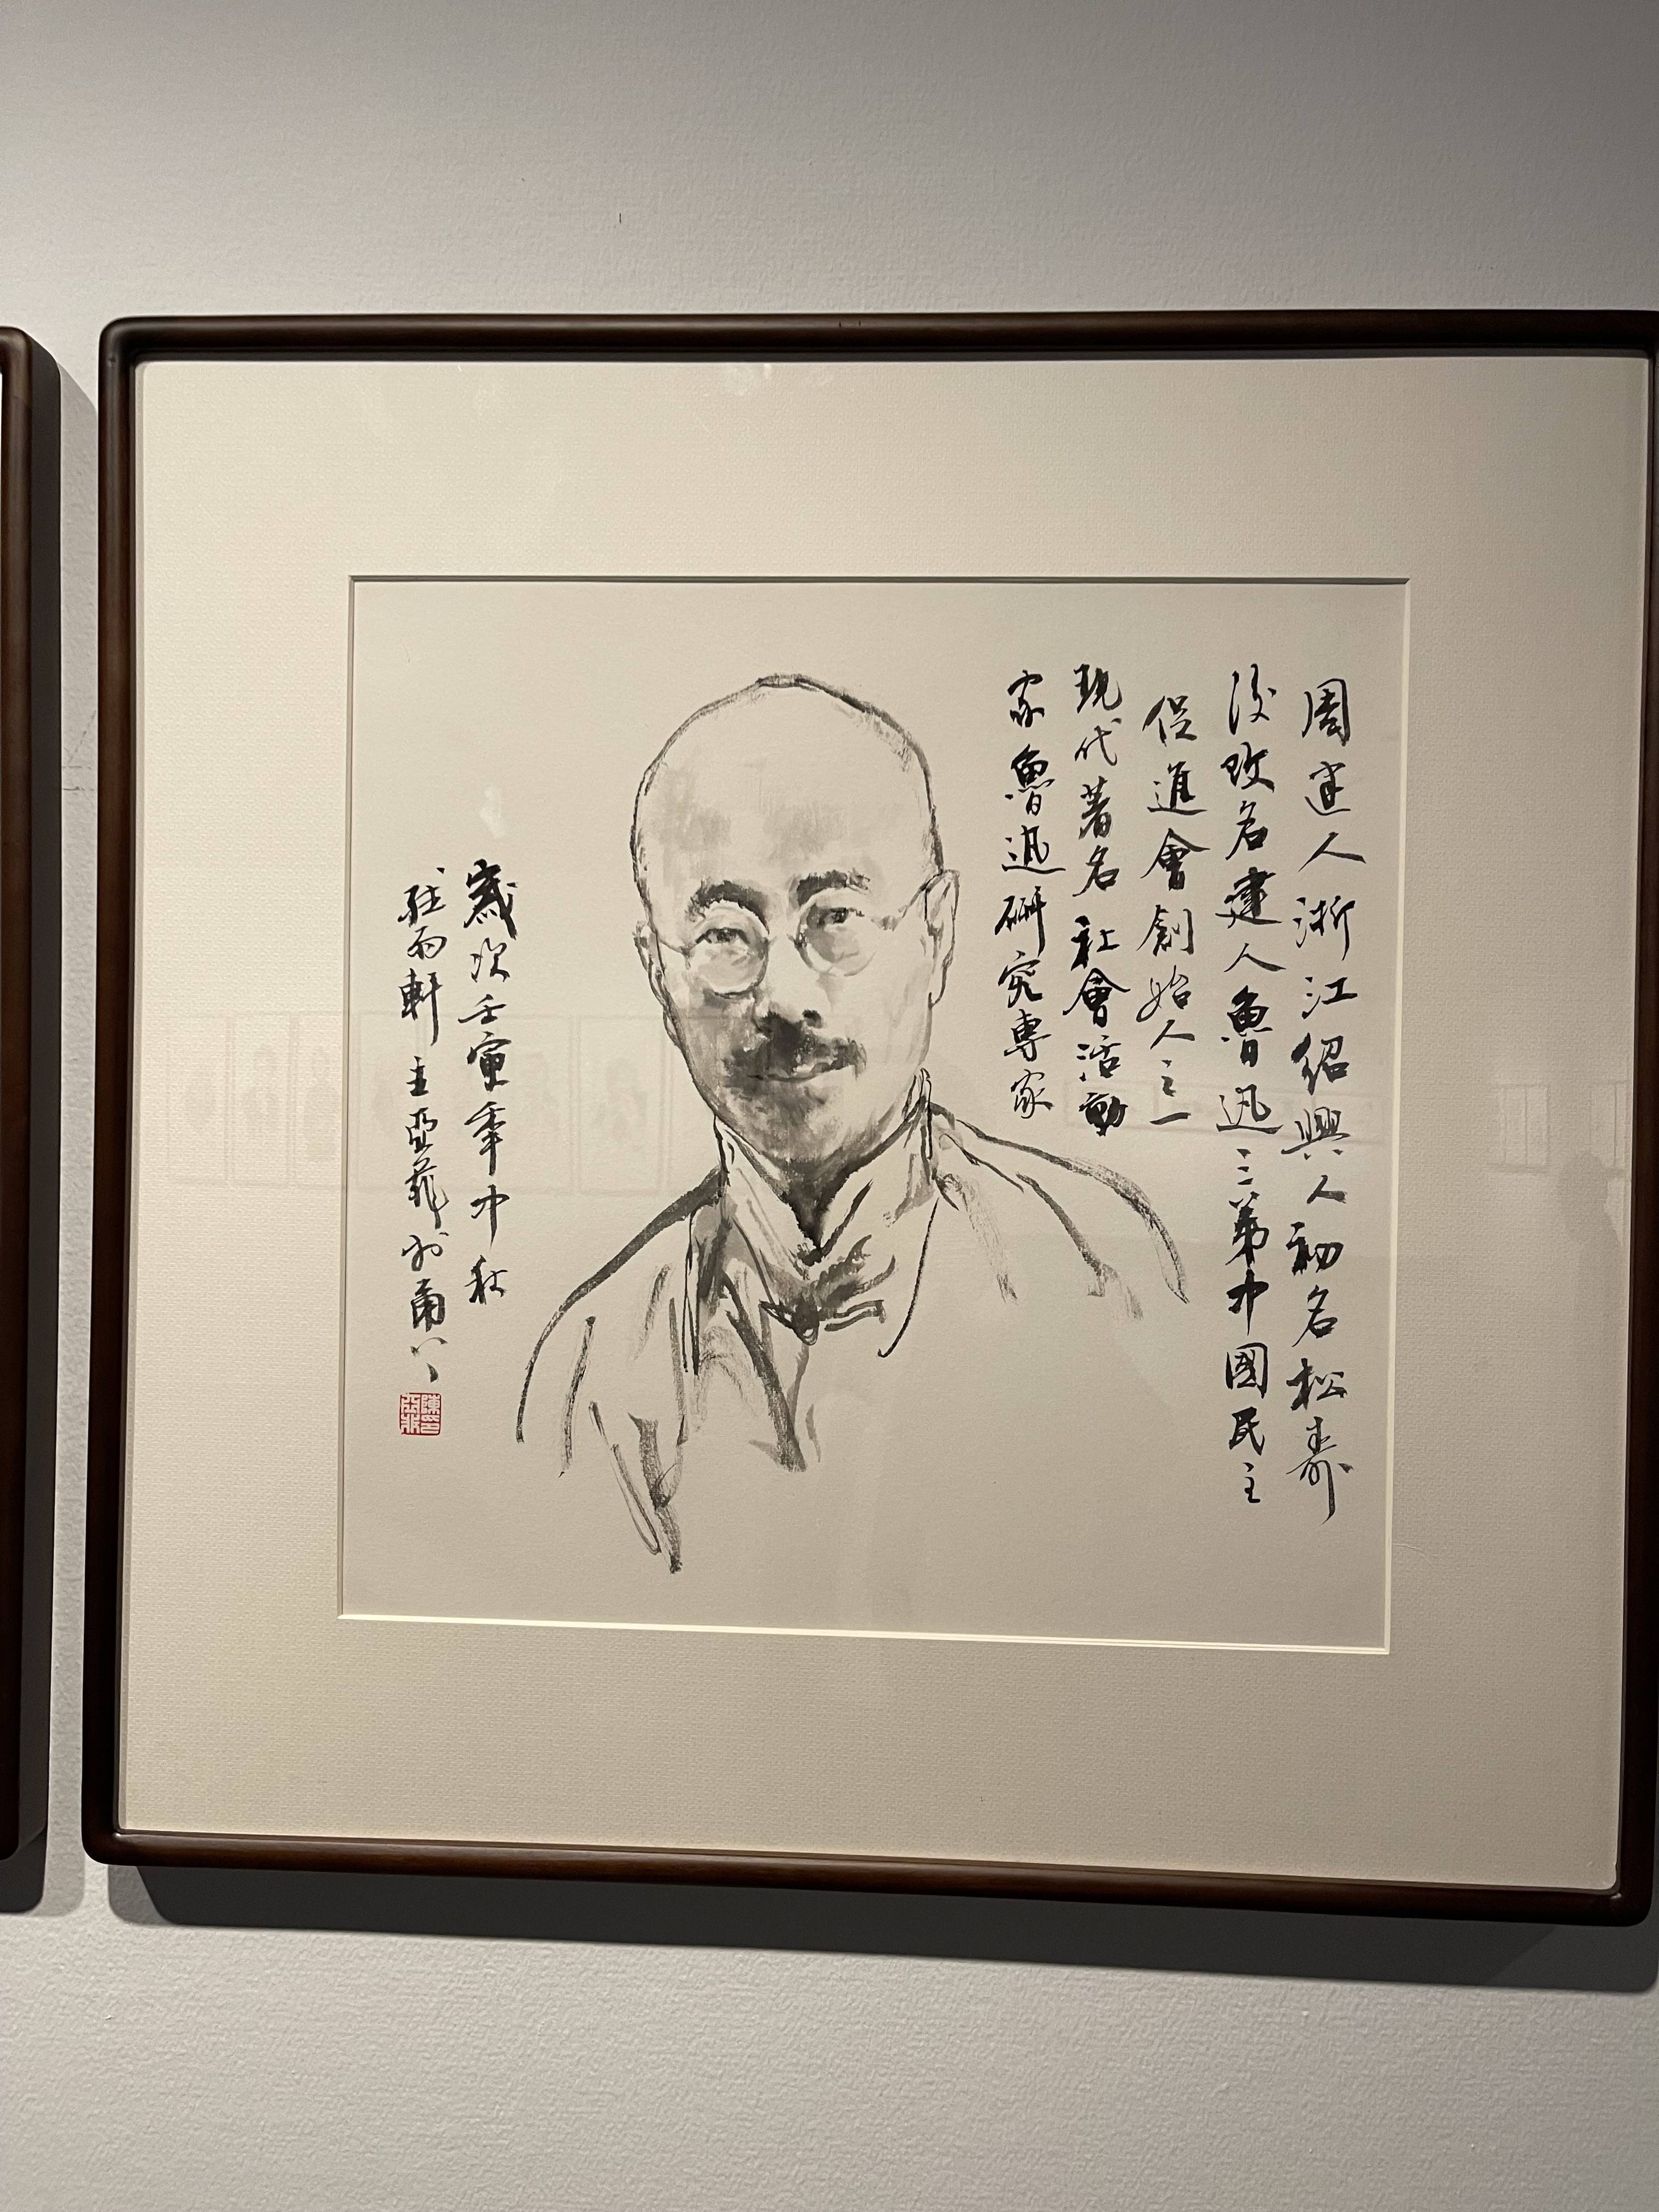 周建人浙江紹興人初名松壽
後改名建人魯迅三弟中國民主
促進會創始人之一
現代著名社會活動
家魯迅研究專家
歲次壬寅年中秋
聽雨軒主亞菲於甬上